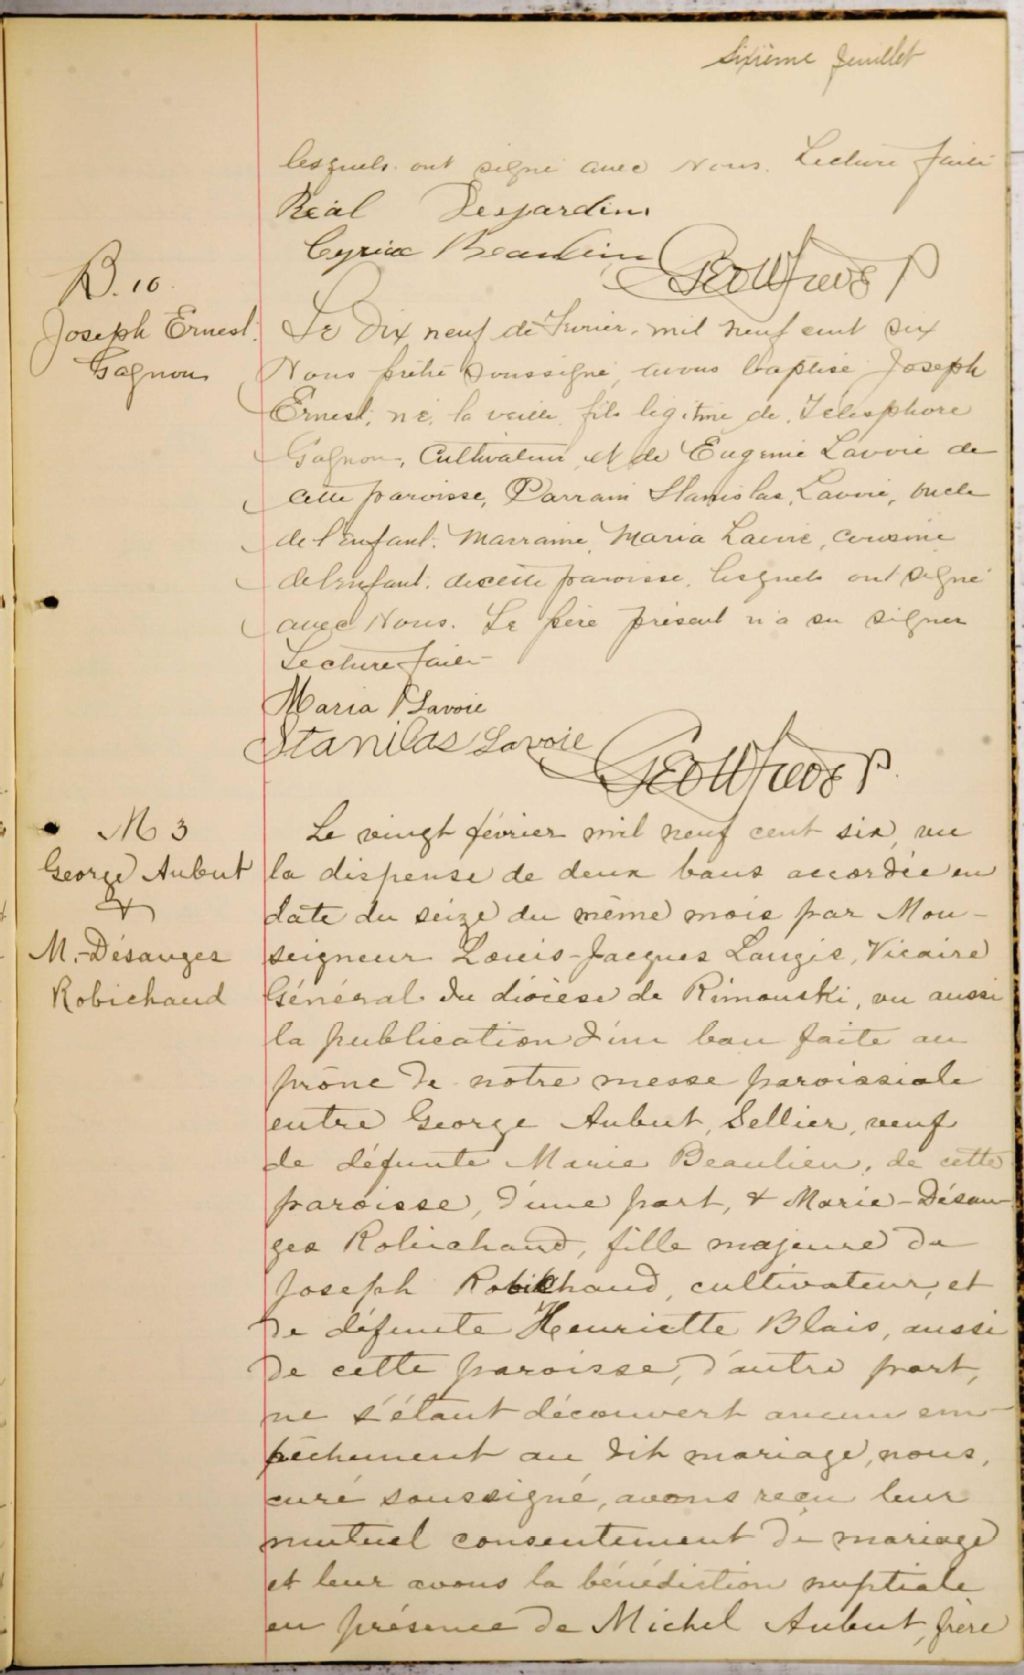 Sixième feuillet
lesquels ont signé avec Nous. Lecture faite
Réal Desjardins
Cyrice Beaulieu
B. 10
Joseph Ernest
Gagnon
Le Dix neuf de Février mil neuf cent six
Nous prêtre soussigné, avons baptisé Joseph
Ernest, né, la veille, fils légitime de Télesphore
Gagnon, Cultivateur, et de Eugénie Lavoie de
cette paroisse, Parrain Stanislas Lavoie, oncle
de l'enfant. Marraine, Maria Lavoie, cousine
de l'enfant, de cette paroisse, lesquels ont signé
avec Nous. Le père présent n'a su signer
Lecture faite
Maria Lavoie
Stanilas Lavoie
M 3
George Aubut
&
M.-Désanges
Robichaud
Le vingt février mil neuf cent six, vu
la dispense de deux bans accordée en
date du seize du même mois par Mon-
seigneur Louis-Jacques Langis, Vicaire
Général du diocèse de Rimouski, vu aussi
la publication d'un ban faite au
prône de notre messe paroissiale
entre George Aubut, Sellier, veuf
de défunte Marie Beaulieu, de cette
paroisse, d'une part, & Marie-Désan-
ges Robichaud, fille majeure de
Joseph Robichaud, cultivateur, et
de défunte Henriette Blais, aussi
de cette paroisse, d'autre part,
ne s'étant découvert aucun em-
pêchement au dit mariage, nous,
curé soussigné, avons reçu leur
mutuel consentement de mariage
et leur avons la bénédiction nuptiale
en présence de Michel Aubut, frère